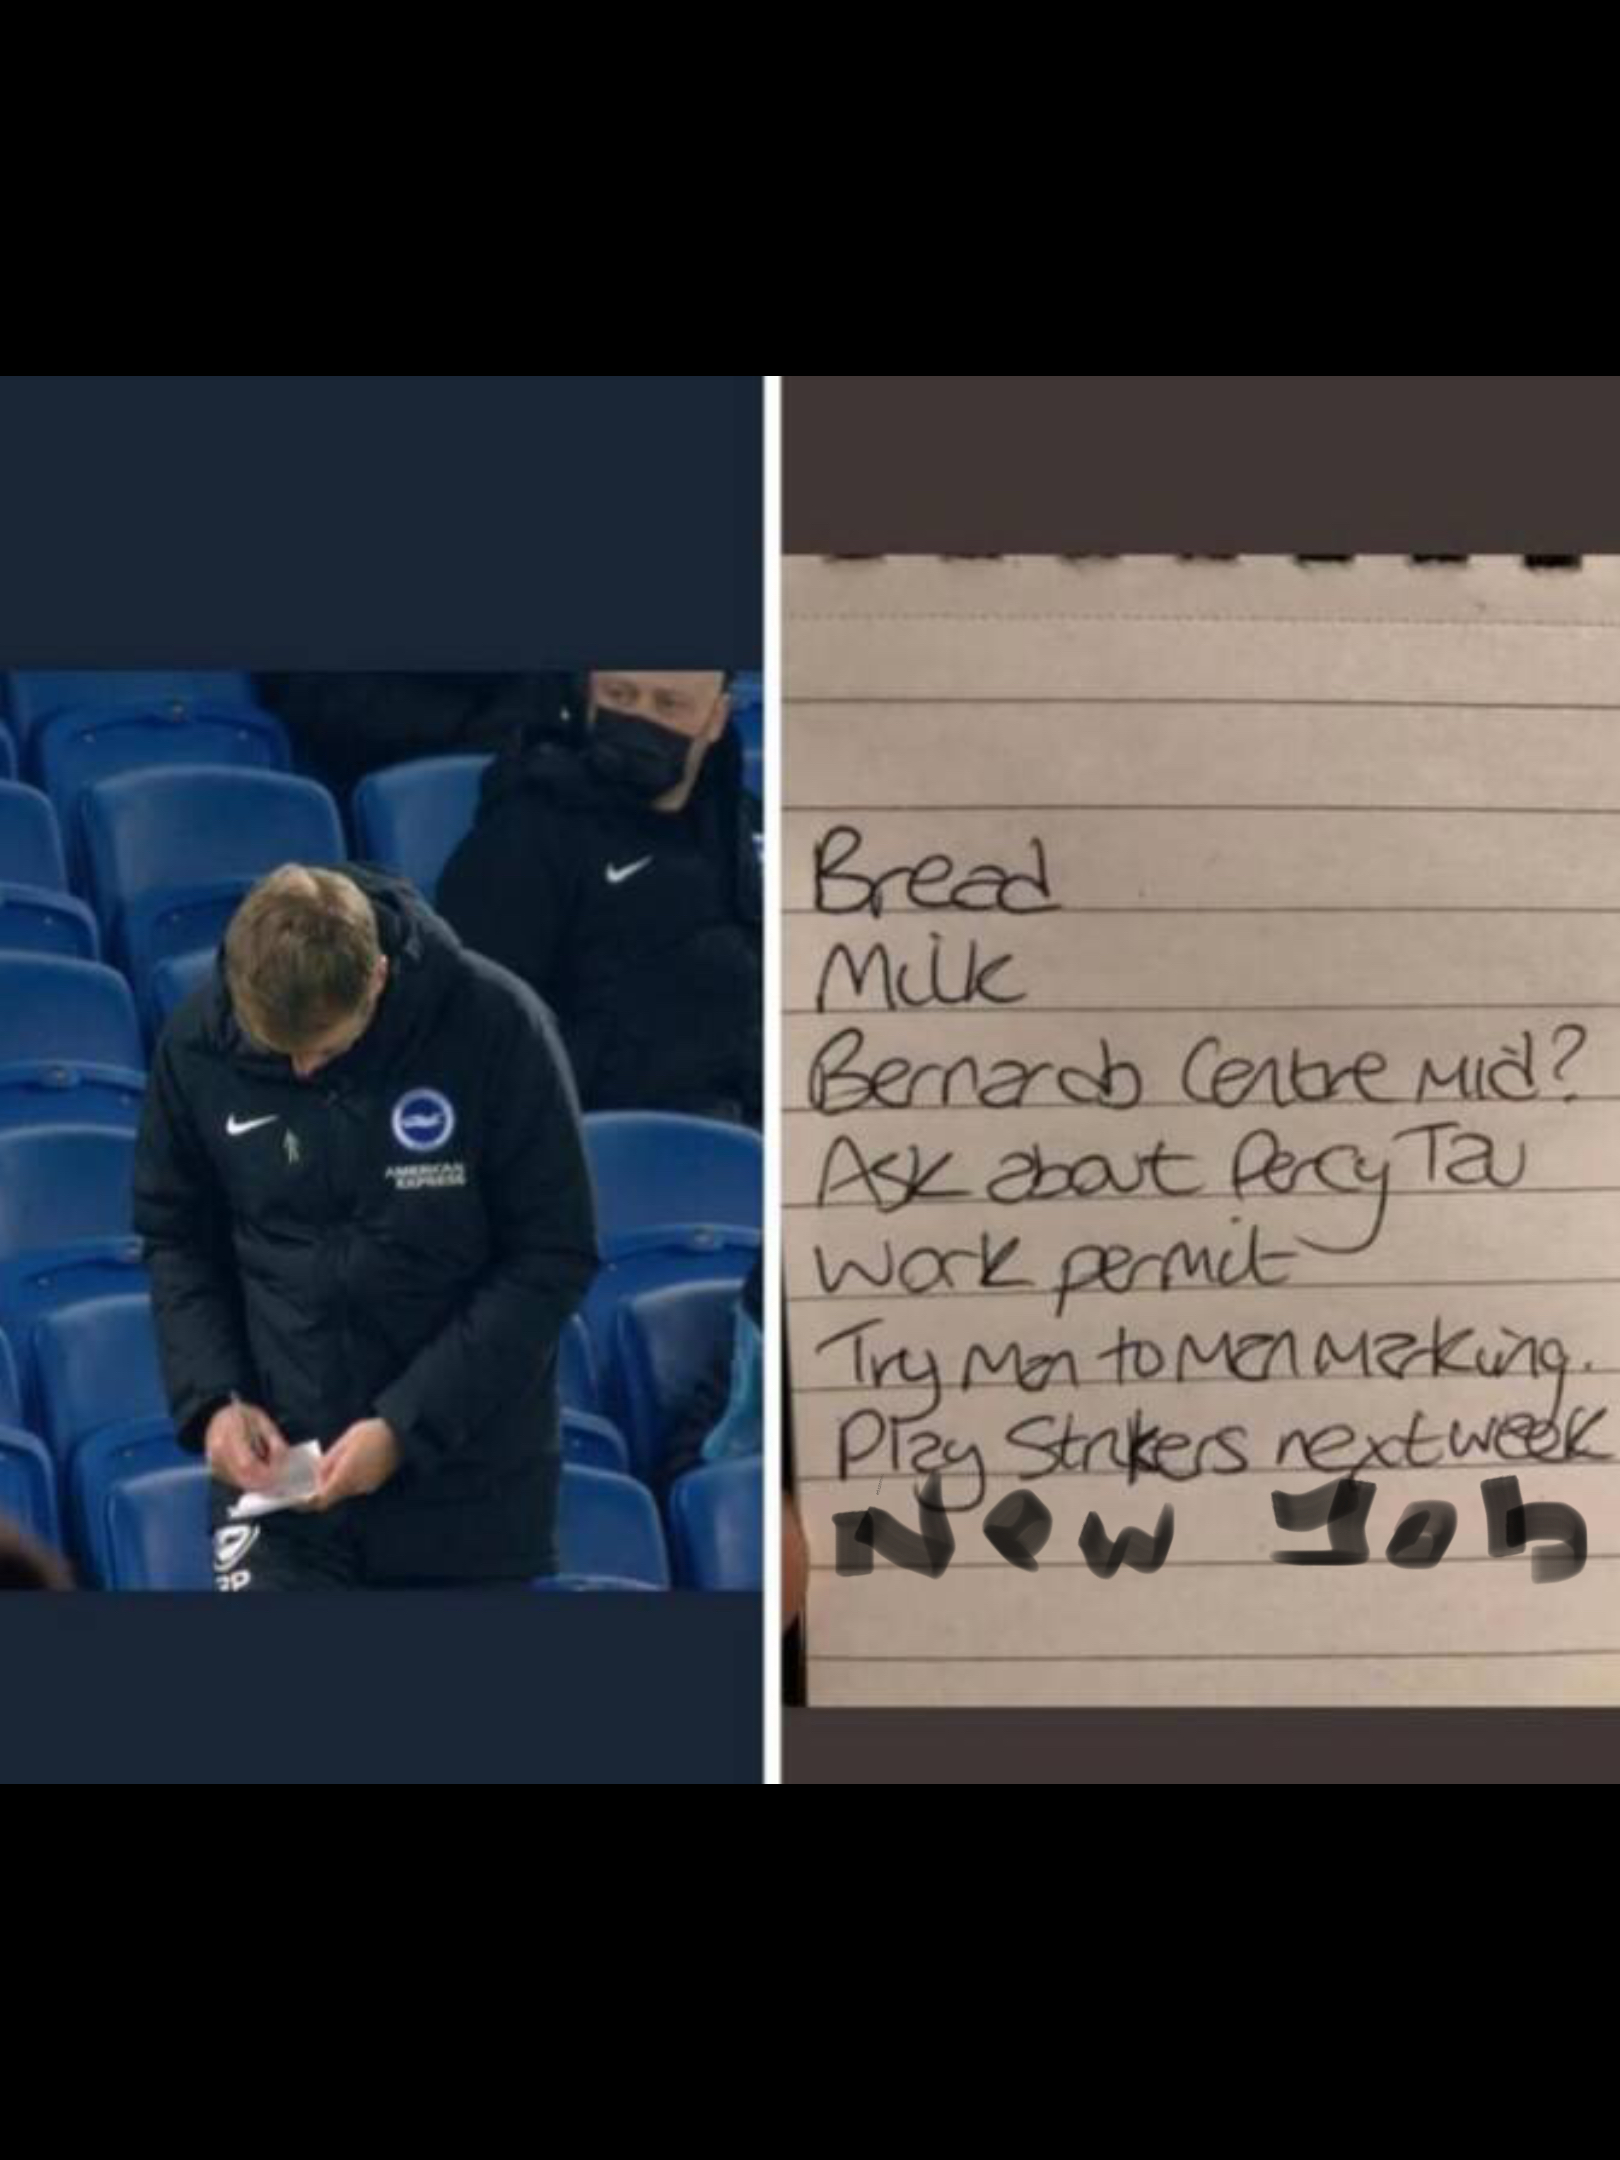 AMERICAN
EXPRESS
Bread
Milk
Bernardo Centre Mid?
Ask about Percy Tau
Work permit
Try Man to Man Marking.
Play Strikers next week
New Job